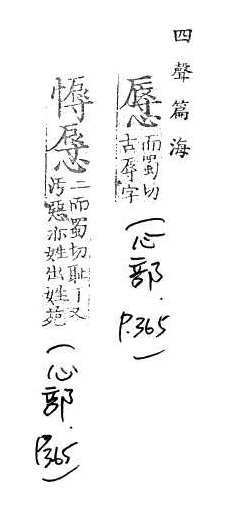 四聲篇海
而蜀切
古辱字
(心部. P.365)
二而蜀切耻丁又
汚惡亦姓出姓苑
(心部. P365)